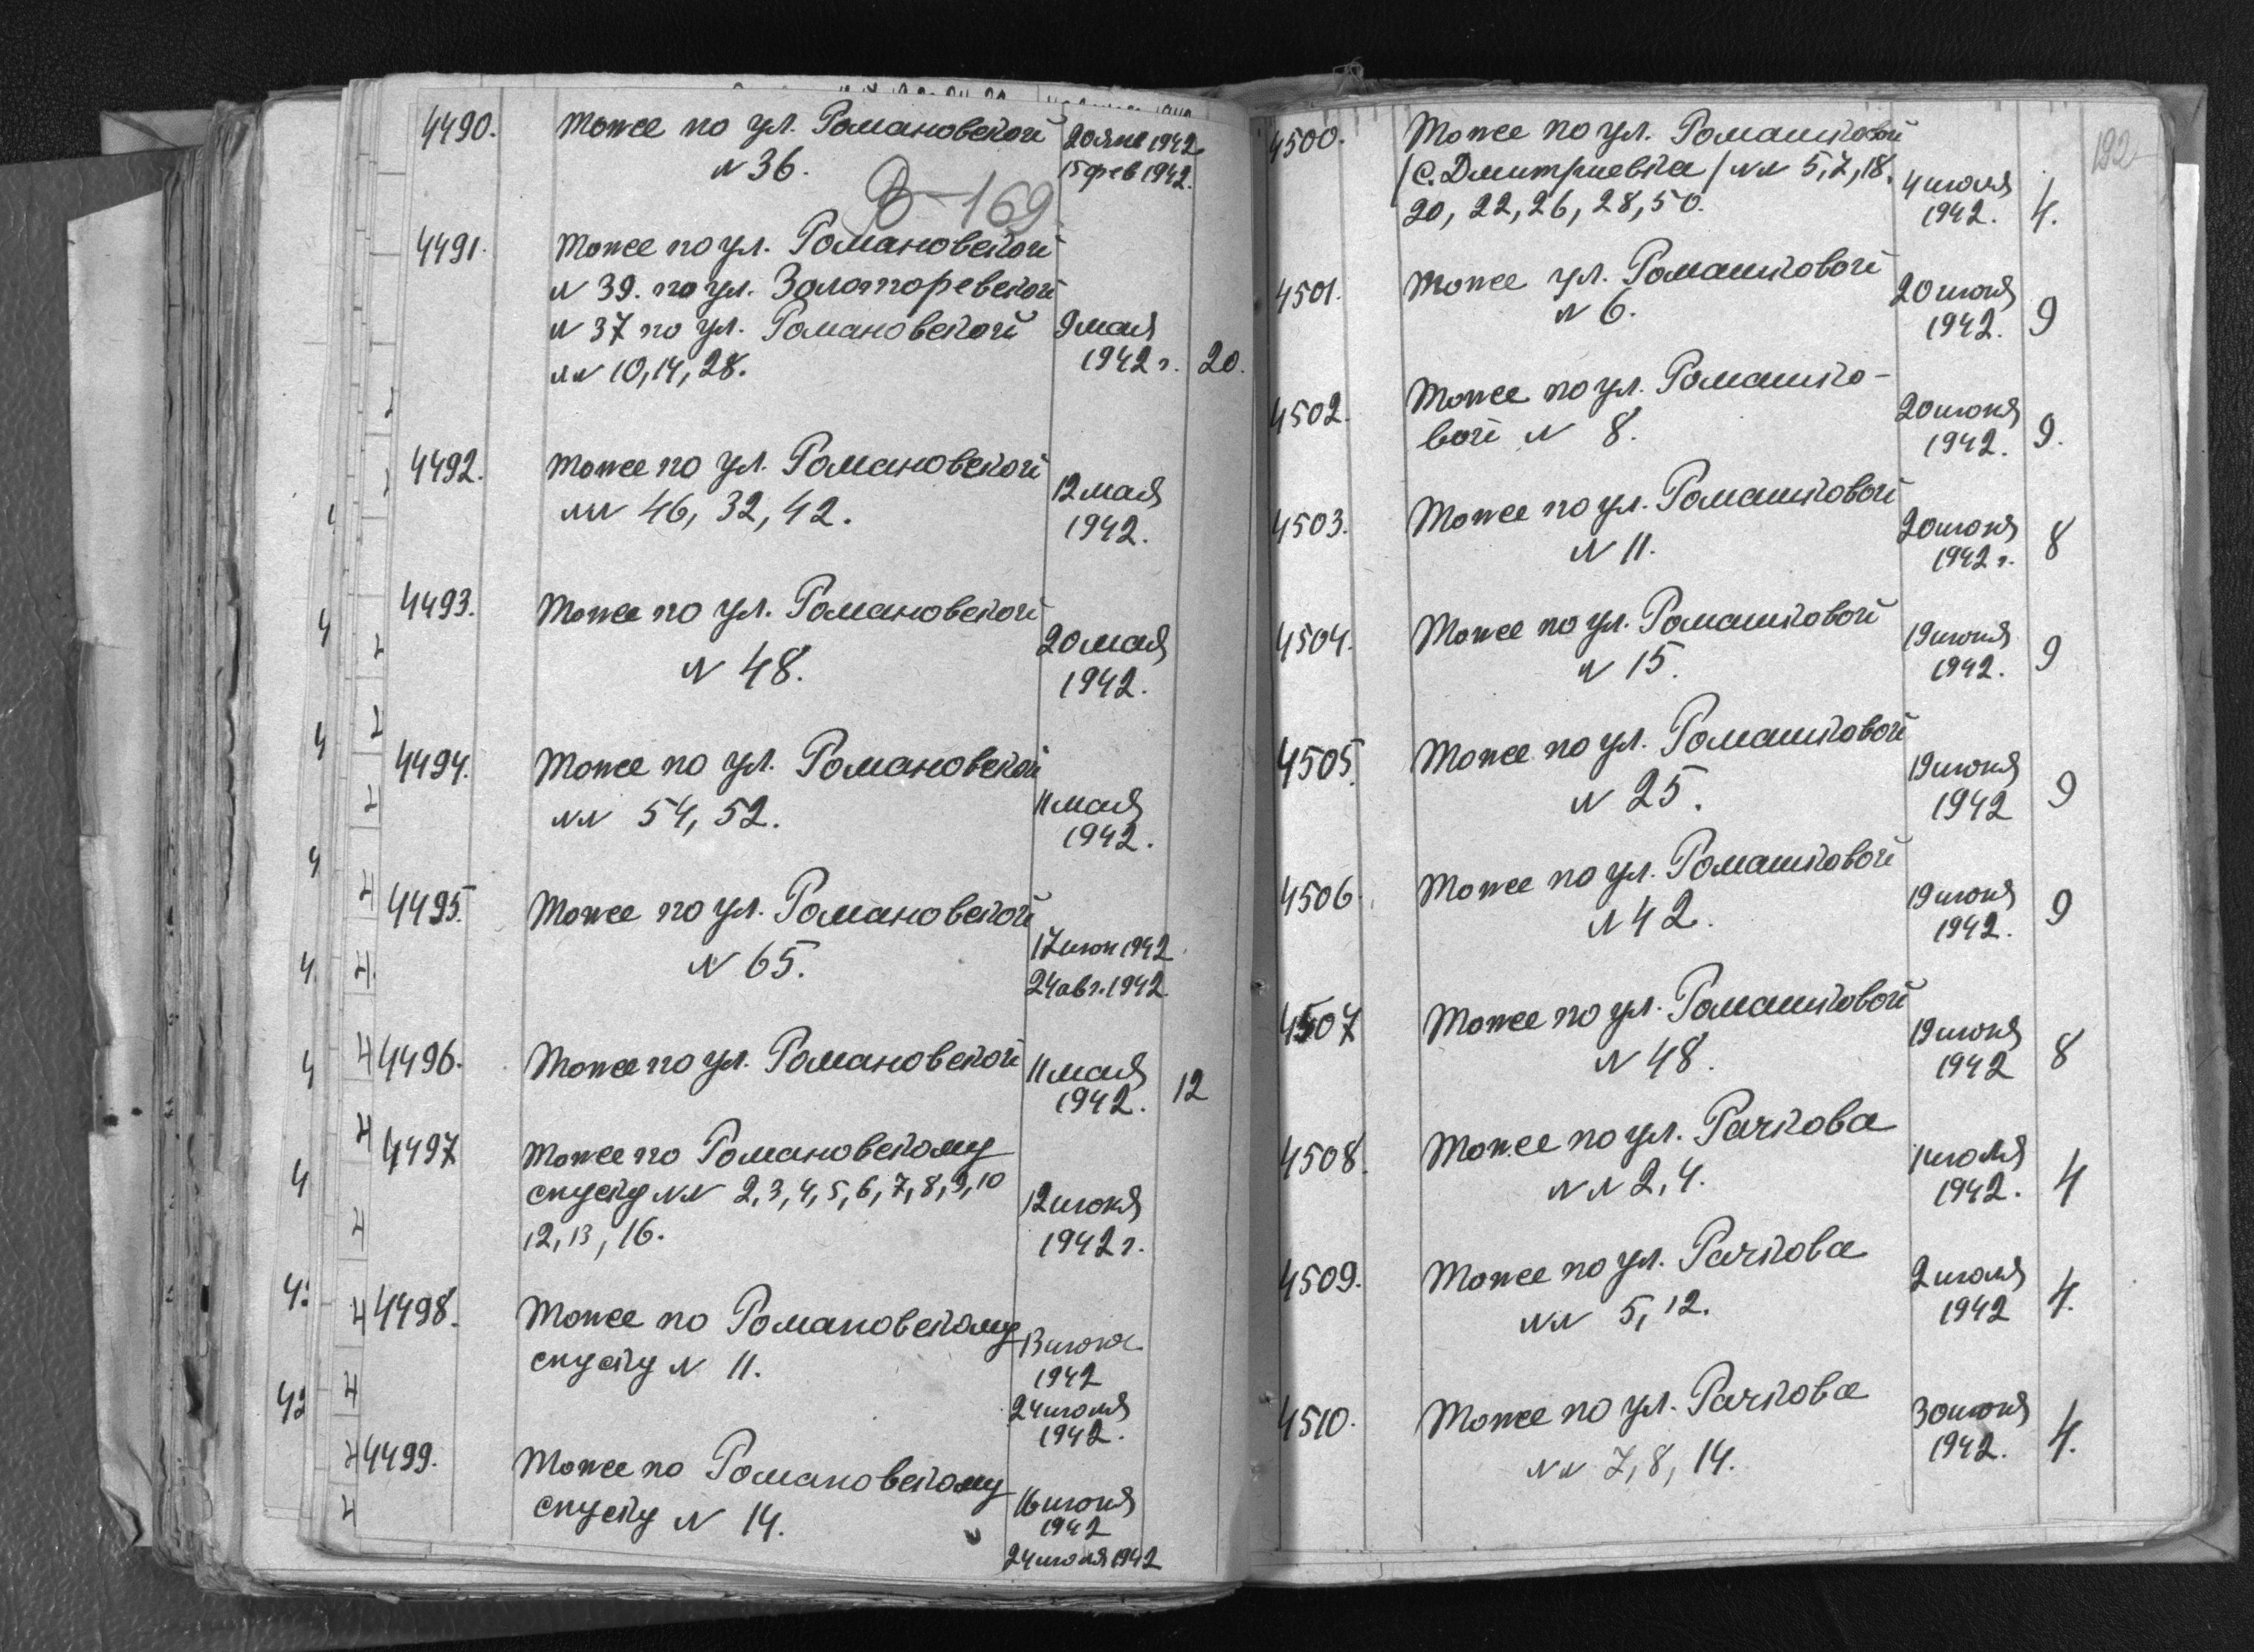 4490. Тоже по ул. Романовской 20 янв 1942
№ 36. 15 фев 1942.
169
4491. Тоже по ул. Романовской
№ 39. по ул. Золоторевской
№ 37 по ул. Романовской 9 мая
№№ 10, 14, 28. 1942 г. 20.
4492. Тоже по ул. Романовской 12 мая
№№ 46, 32, 42. 1942.
4493. Тоже по ул. Романовской 20 мая
№ 48. 1942.
4494. Тоже по ул. Романовской 11 мая
№№ 54, 52. 1942.
4495. Тоже по ул. Романовской 17 июн 1942
№ 65. 24 авг. 1942.
4496. Тоже по ул. Романовской 11 мая
1942. 12
4497 Тоже по Романовскому
спуску №№ 2, 3, 4, 5, 6, 7, 8, 9, 10 12 июня
12, 13, 16. 1942 г.
4498. Тоже по Романовскому 13 июня
спуску № 11. 1942
24 июля
1942.
4499. Тоже по Романовскому 16 июня
спуску № 14. 1942
24 июля 1942
192
4500. Тоже по ул. Ромашковой
/с. Дмитриевка/ №№ 5, 7, 18, 4 июля
20, 22, 26, 28, 50. 1942. 4.
4501. Тоже ул. Ромашковой 20 июня
№ 6. 1942. 9
4502. Тоже по ул. Ромашко- 20 июня
вой № 8. 1942. 9.
4503. Тоже по ул. Ромашковой 20 июня
№ 11. 1942 г. 8
4504. Тоже по ул. Ромашковой 19 июня
№ 15. 1942. 9
4505. Тоже по ул. Ромашковой 19 июня
№ 25. 1942 9
4506. Тоже по ул. Ромашковой 19 июня
№ 42. 1942. 9
4507 Тоже по ул. Ромашковой 19 июня
№ 48. 1942 8
4508. Тоже по ул. Рачкова 1 июля
№№ 2, 4. 1942. 4
4509. Тоже по ул. Рачкова 2 июля
№№ 5, 12. 1942 4.
4510. Тоже по ул. Рачкова 30 июня
№№ 7, 8, 14. 1942. 4.